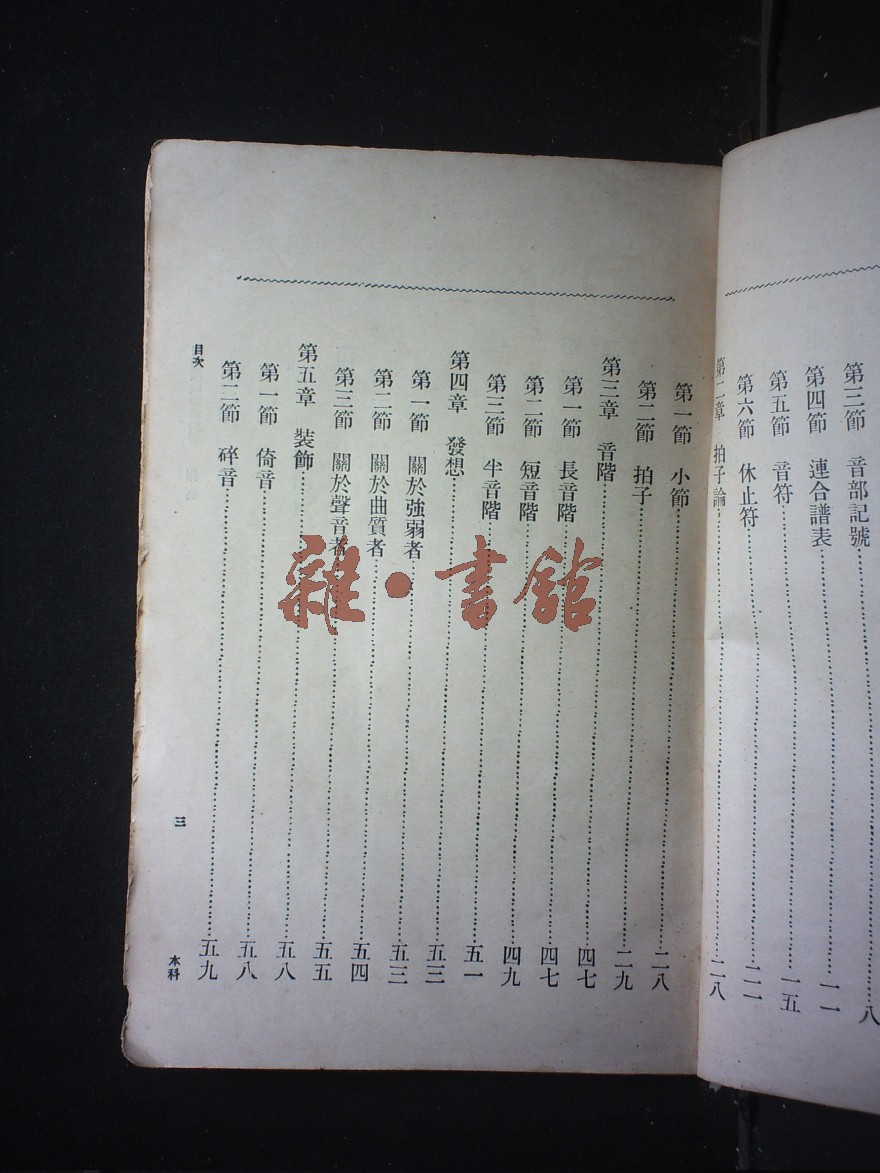 第三節　音部記號……八
第四節　連合譜表……一一
第五節　音符……一五
第六節　休止符……二二
第二章　拍子論……二八
第一節　小節……二八
第二節　拍子……二九
第三章　音階……四七
第一節　長音階……四七
第二節　短音階……四七
第三節　半音階……四九
第四章　發想……五一
第一節　關於強弱者……五三
第二節　關於曲質者……五三
第三節　關於聲音者……五四
第五章　裝飾……五五
第一節　倚音……五八
第二節　碎音……五八
五九
目次
三
本科
雜·書館